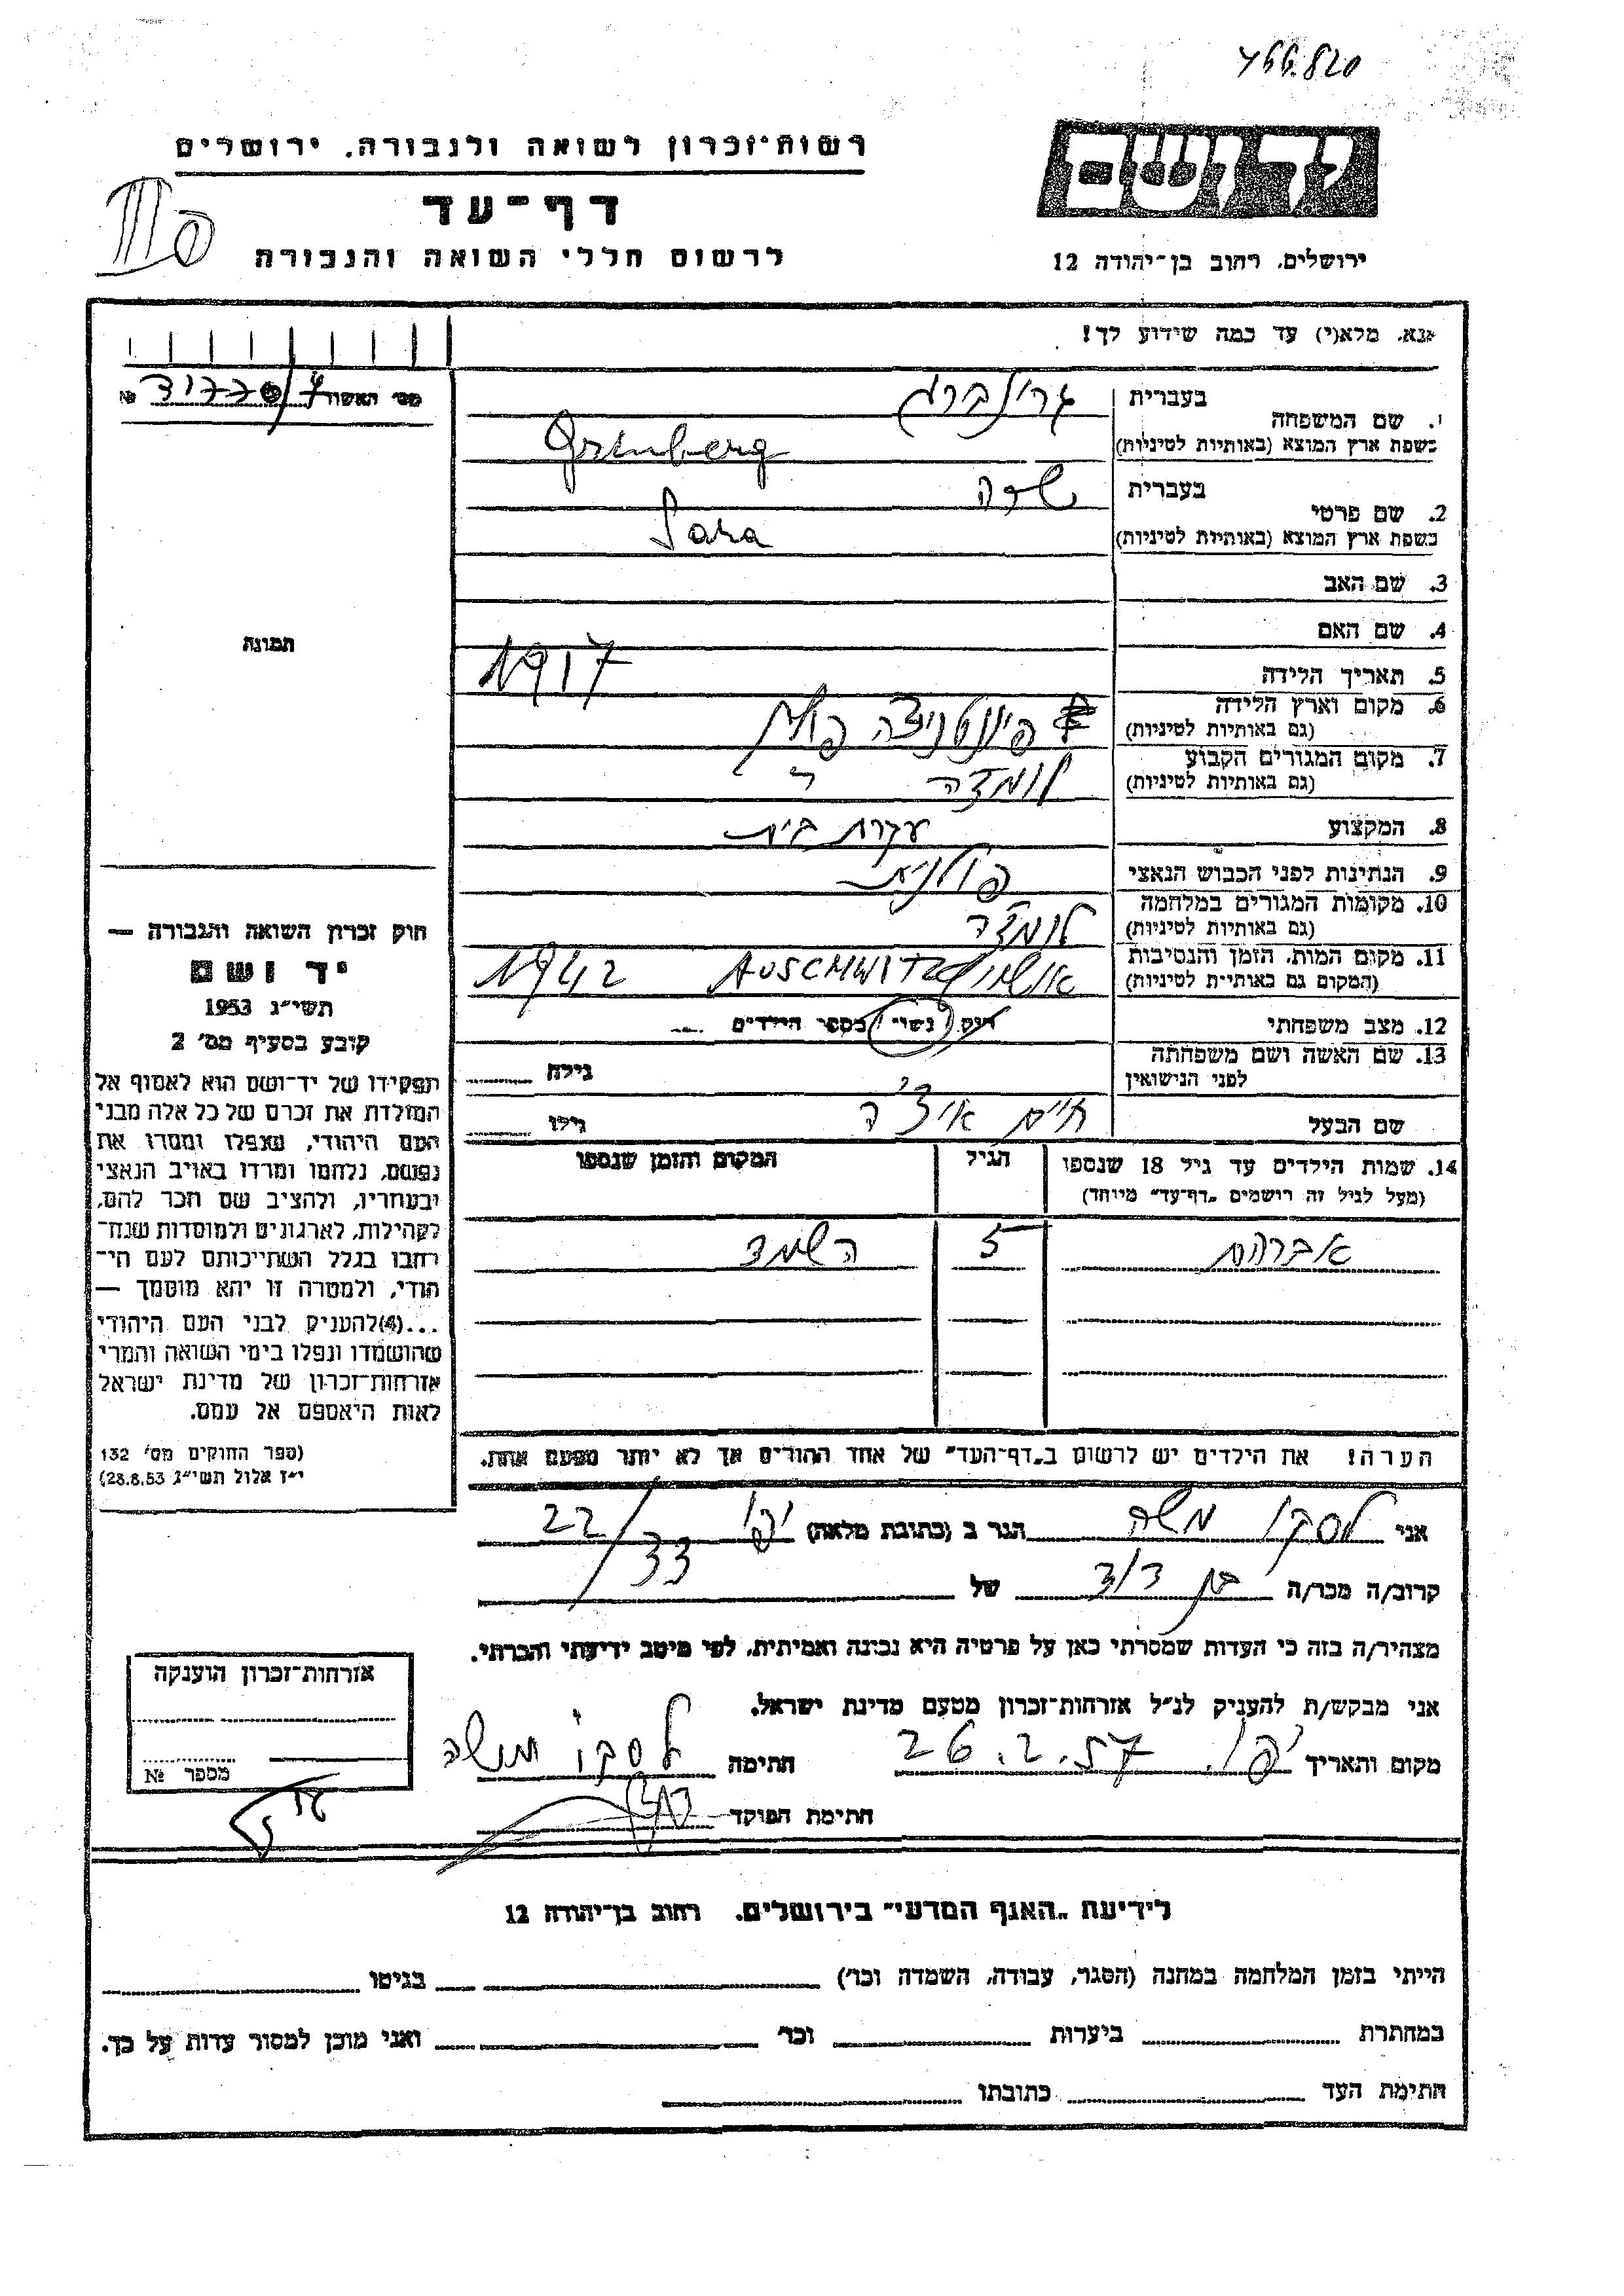 466.820
רשות-זכרון לשואה ולגבורה, ירושלים
דף-עד
לרשום חללי השואה והגבורה
יד ושם
ירושלים, רחוב בן-יהודה 12
אנא, מלא(י) עד כמה שידוע לך!
מס' האשור № 
1. שם המשפחה
בעברית גרינברג
בשפת ארץ המוצא (באותיות לטיניות) Grinberg
2. שם פרטי
בעברית שרה
בשפת ארץ המוצא (באותיות לטיניות) Sara
3. שם האב
4. שם האם
5. תאריך הלידה 1917
6. מקום וארץ הלידה
(גם באותיות לטיניות) פולין
7. מקום המגורים הקבוע
(גם באותיות לטיניות) לומזה
8. המקצוע עקרת בית
9. הנתינות לפני הכבוש הנאצי פולנית
10. מקומות המגורים במלחמה
(גם באותיות לטיניות) לומזה
11. מקום המות, הזמן והנסיבות
(המקום גם באותיות לטיניות) AUSCHWITZ 1942
12. מצב משפחתי רווק נשוי מספר הילדים
13. שם האשה ושם משפחתה
לפני הנישואין גילה
שם הבעל חיים איצ'ה גילו
14. שמות הילדים עד גיל 18 שנספו
(מעל לגיל זה רושמים "דף-עד" מיוחד)
הגיל
המקום והזמן שנספו
אברהם 5 השמד
הערה! את הילדים יש לרשום ב"דף-העד" של אחד ההורים אך לא יותר מפעם אחת.
תמונה
חוק זכרון השואה והגבורה —
יד ושם
תשי"ג 1953
קובע בסעיף מס' 2
תפקידו של יד-ושם הוא לאסוף אל
המולדת את זכרם של כל אלה מבני
העם היהודי, שנפלו ומסרו את
נפשם, נלחמו ומרדו באויב הנאצי
ובעוזריו, ולהציב שם וזכר להם,
לקהילות, לארגונים ולמוסדות שנח-
רבו בגלל השתייכותם לעם הי-
הודי, ולמטרה זו יהא מוסמך —
...(4)להעניק לבני העם היהודי
שהושמדו ונפלו בימי השואה והמרי
אזרחות-זכרון של מדינת ישראל
לאות היאספם אל עמם.
(ספר החוקים מס' 132
י"ז אלול תשי"ג 28.8.53)
אני לסקו משה הגר ב (כתובת מלאה) יפו 33/22
קרוב/ה מכר/ה בן דוד של
מצהיר/ה בזה כי העדות שמסרתי כאן על פרטיה היא נכונה ואמיתית, לפי מיטב ידיעתי והכרתי.
אני מבקש/ת להעניק לנ"ל אזרחות-זכרון מטעם מדינת ישראל.
מקום ותאריך יפו. 26.2.57 חתימה לסקו משה
חתימת הפוקד
אזרחות-זכרון הוענקה
מספר №
לידיעת "האגף המדעי" בירושלים, רחוב בן-יהודה 12
הייתי בזמן המלחמה במחנה (הסגר, עבודה, השמדה וכו') בגיטו
במחתרת ביערות וכו' ואני מוכן למסור עדות על כך.
חתימת העד כתובתו